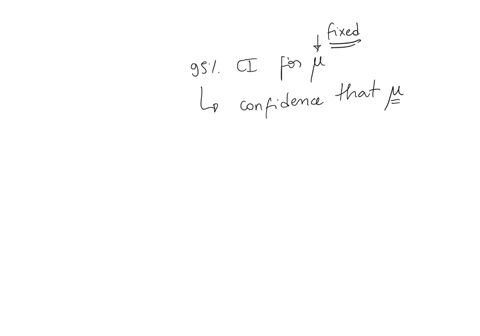 fixed
95% CI for μ
confidence that μ